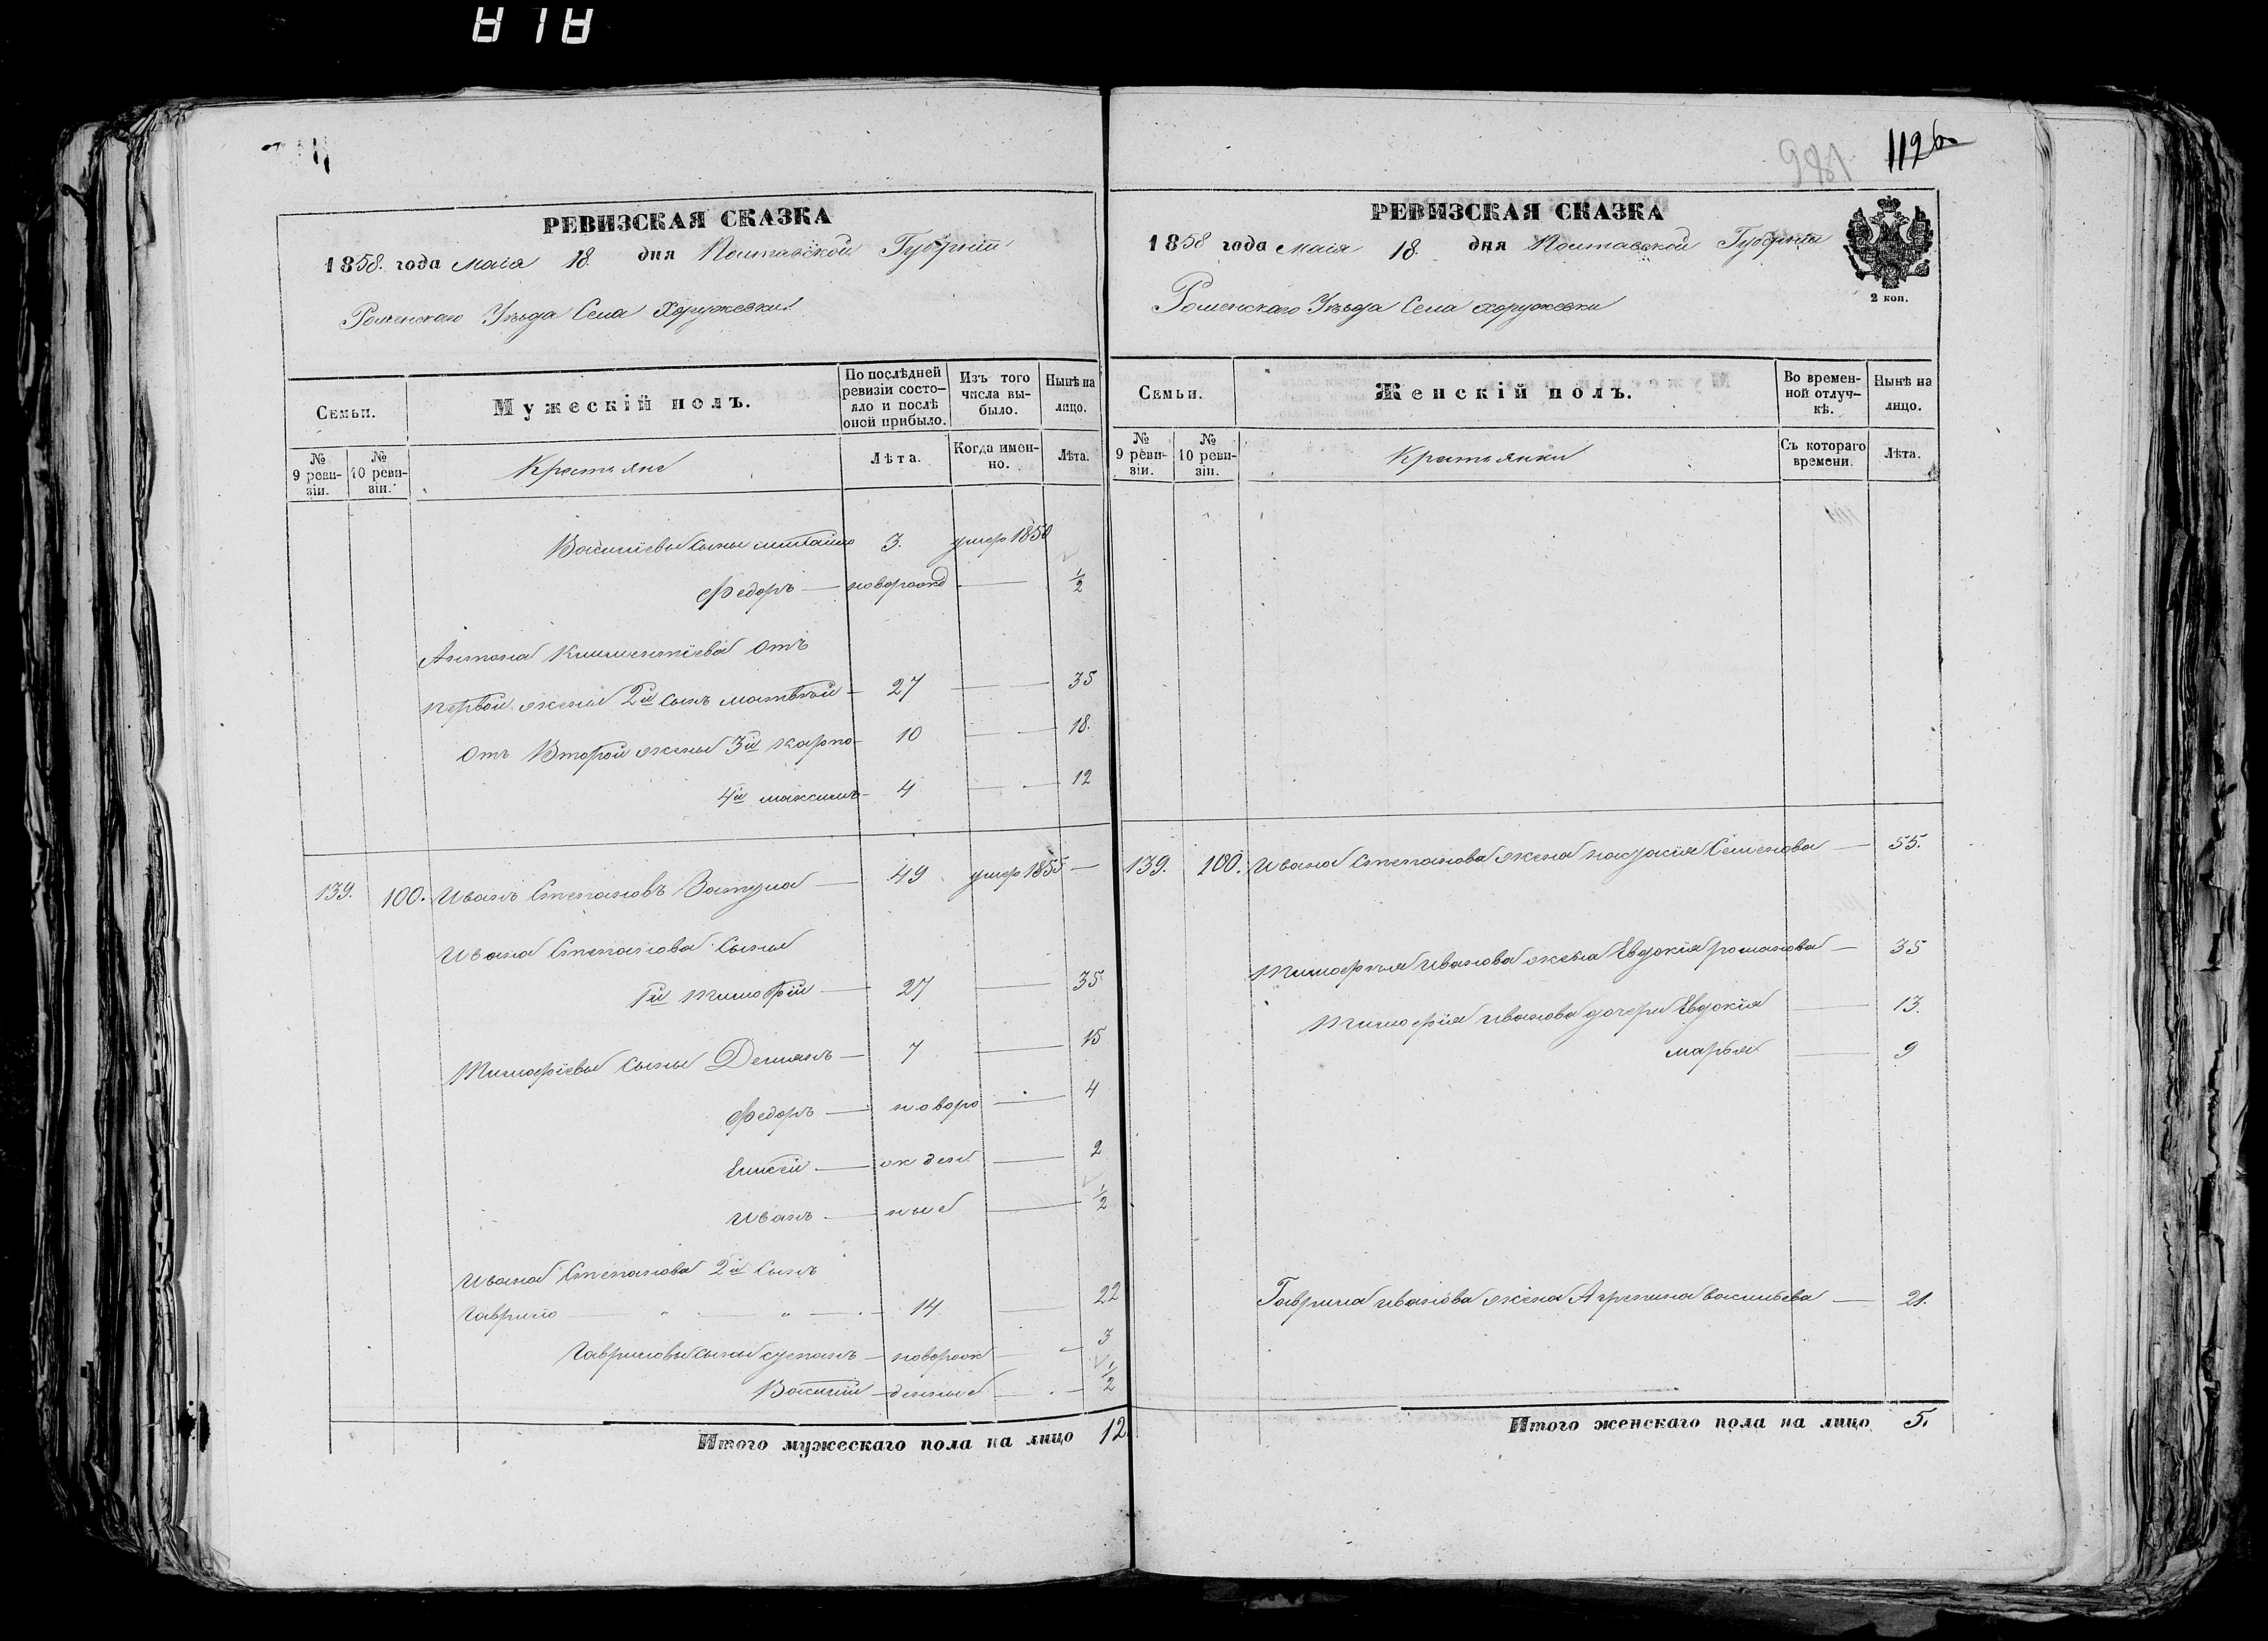 818
РЕВИЗСКАЯ СКАЗКА
1858. года маія 18. дня Полтавской Губерніи
Роменскаго Уѣзда Села Хоружевки
Семьи.
Мужескій полъ.
По послѣдней ревизіи состо-
яло и послѣ
оной прибыло.
Изъ того
числа вы-
было.
Нынѣ на
лицо.
№
9 реви-
зіи.
№
10 реви-
зіи.
Крестьяне
Лѣта.
Когда имен-
но.
Лѣта.
Васильевы сыны 3. умер 1850
Федоръ — новорожд — ½
Антона Климентіева отъ
первой жены 2й сынъ матвѣй — 27 — 35
отъ Второй жены 3й карпо — 10 — 18.
4й максимъ — 4 — 12
139. 100. Иванъ Степановъ — 49 умер 1855 —
Ивана Степанова Сыны
1й тимофій — 27 — 35
Тимофіевы Сыны Демьянъ — 7 — 15
Федоръ — новоро — 4
Елисей — жден — 2
Иванъ — ные — ½
Ивана Степанова 2й Сынъ
Гаврило — 14 — 22
Гавриловы сыны степанъ — неворож — 3
Василій — денные — ½
Итого мужескаго пола на лицо 12
1126
РЕВИЗСКАЯ СКАЗКА
1858 года маія 18. дня Полтавской Губерніи
2 коп.
Роменскаго Уѣзда Села хоружевки
Семьи.
Женскій полъ.
Во времен-
ной отлуч-
кѣ.
Нынѣ на
лицо.
№
9 реви-
зіи.
№
10 реви-
зіи.
Крестьянки
Съ котораго
времени.
Лѣта.
139. 100. Ивана Степанова жена Семенова — 55.
Тимофѣя Иванова жена Евдокія романова — 35
Тимофія иванова дочери Евдокія — 13.
марья — 9
Гаврила иванова жена Агрепина васильева — 21.
Итого женскаго пола на лицо 5.